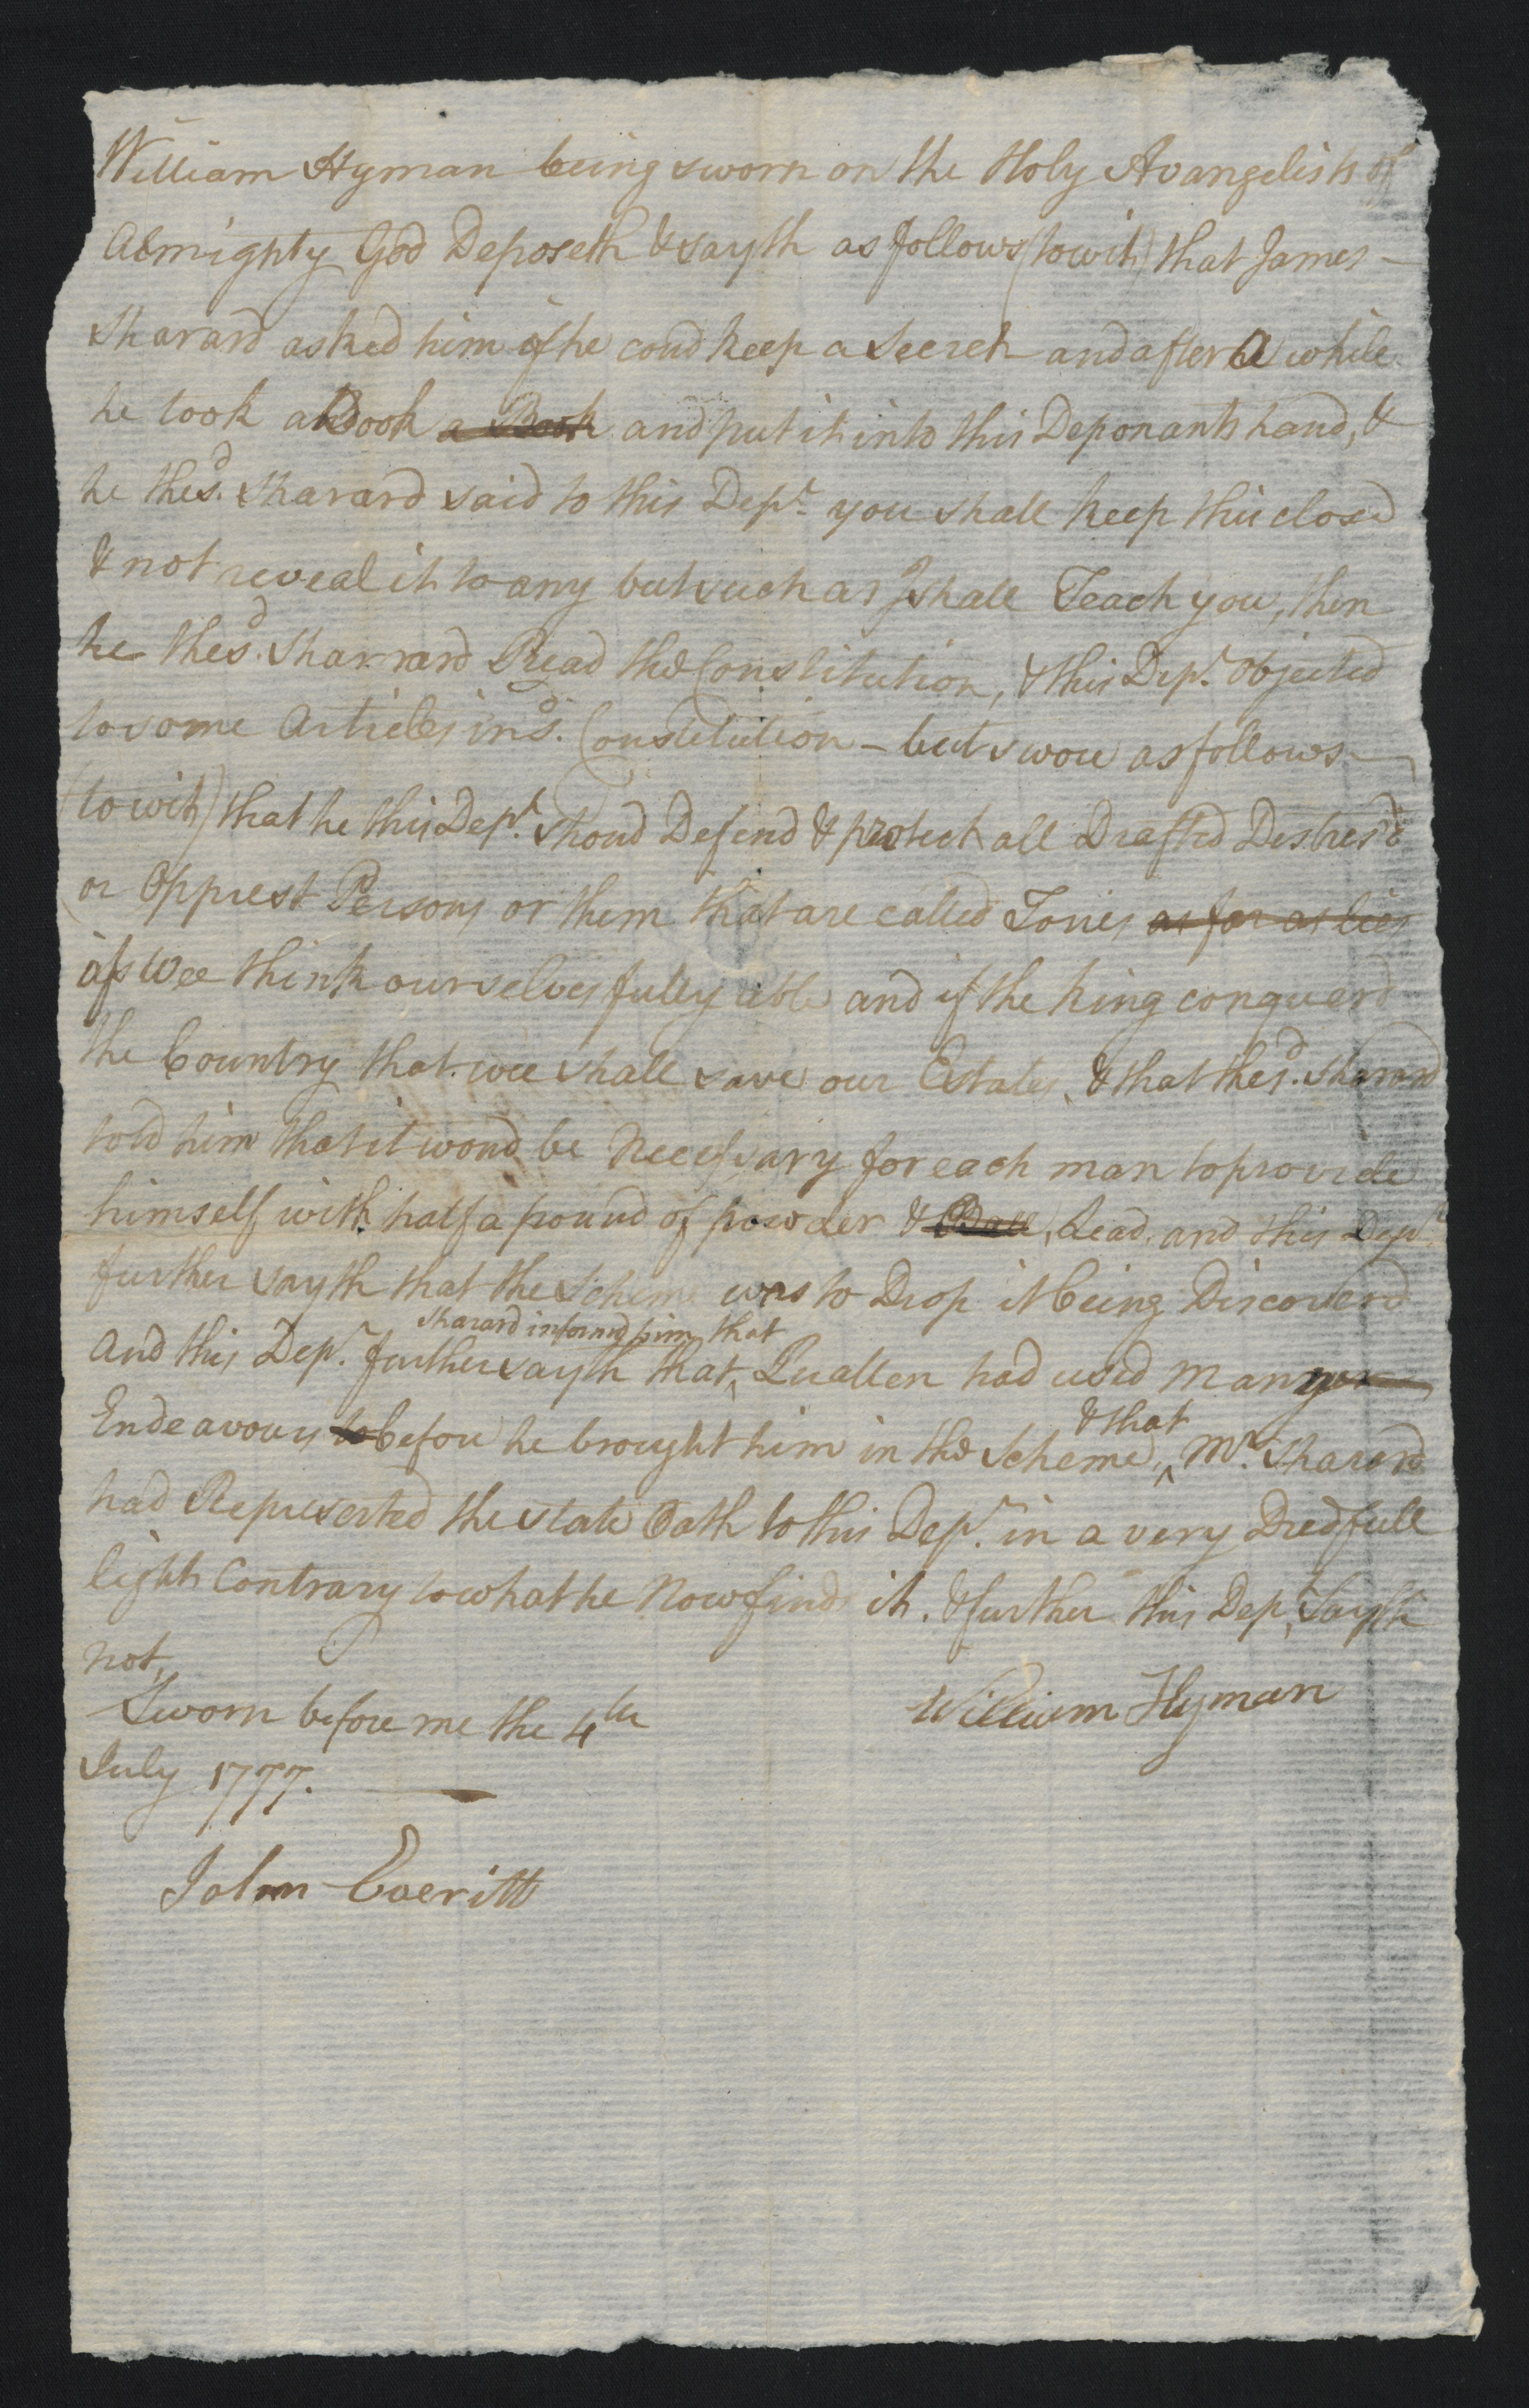 William Hyman being sworn on the Holy Avangelists of
Almighty God Deposeth & sayth as follows (towit) that James
Sharard asked him if he coud keep a Secret and after a while
he took a Book a Book and put it into this Deponants hand, &
he the sd. Sharard said to this Dept. you shall keep this closed
& not reveal it to any but such as I shall Teach you, then
he the sd. Sharrard Read the Constitution, & this Dept. objected
to some Articles in sd. Constitution - but swore as follows
(towit) that he this Dept. shoud Defend & protect all Drafted Distres'd
or Opprest Persons or them that are called Tories as far as lies
as Wee think ourselves fully able and if the King conquerd
the Country that wee shall save our Estates, & that the sd. Sharard
told him that it woud be Necessary for each man to provide
himself with half a pound of powder & Ball, Lead, and this Dept.
further sayth that the Scheme was to Drop it being Discoverd
Sharard informd him that
And this Dept. further sayth that ^ Luallen had used many
& that
Endeavours to before he brought him in the Scheme, ^ Mr. Sharard
had Represented the state Oath to this Dept. in a very Dredfull
light Contrary to what he Now finds it. & further this Dept. Sayth
not,
Sworn before me the 4th
William Hyman
July 1777.
John Everitt